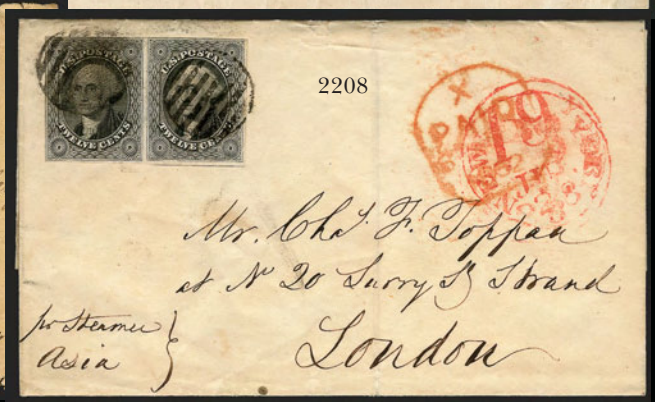 U.S. POSTAGE
TWELVE CENTS
U.S. POSTAGE
TWELVE CENTS
2208
PAID
19
Mr. Chas. F. Toppan
at No 20 Surry St Strand
London
pr Steamer
Asia